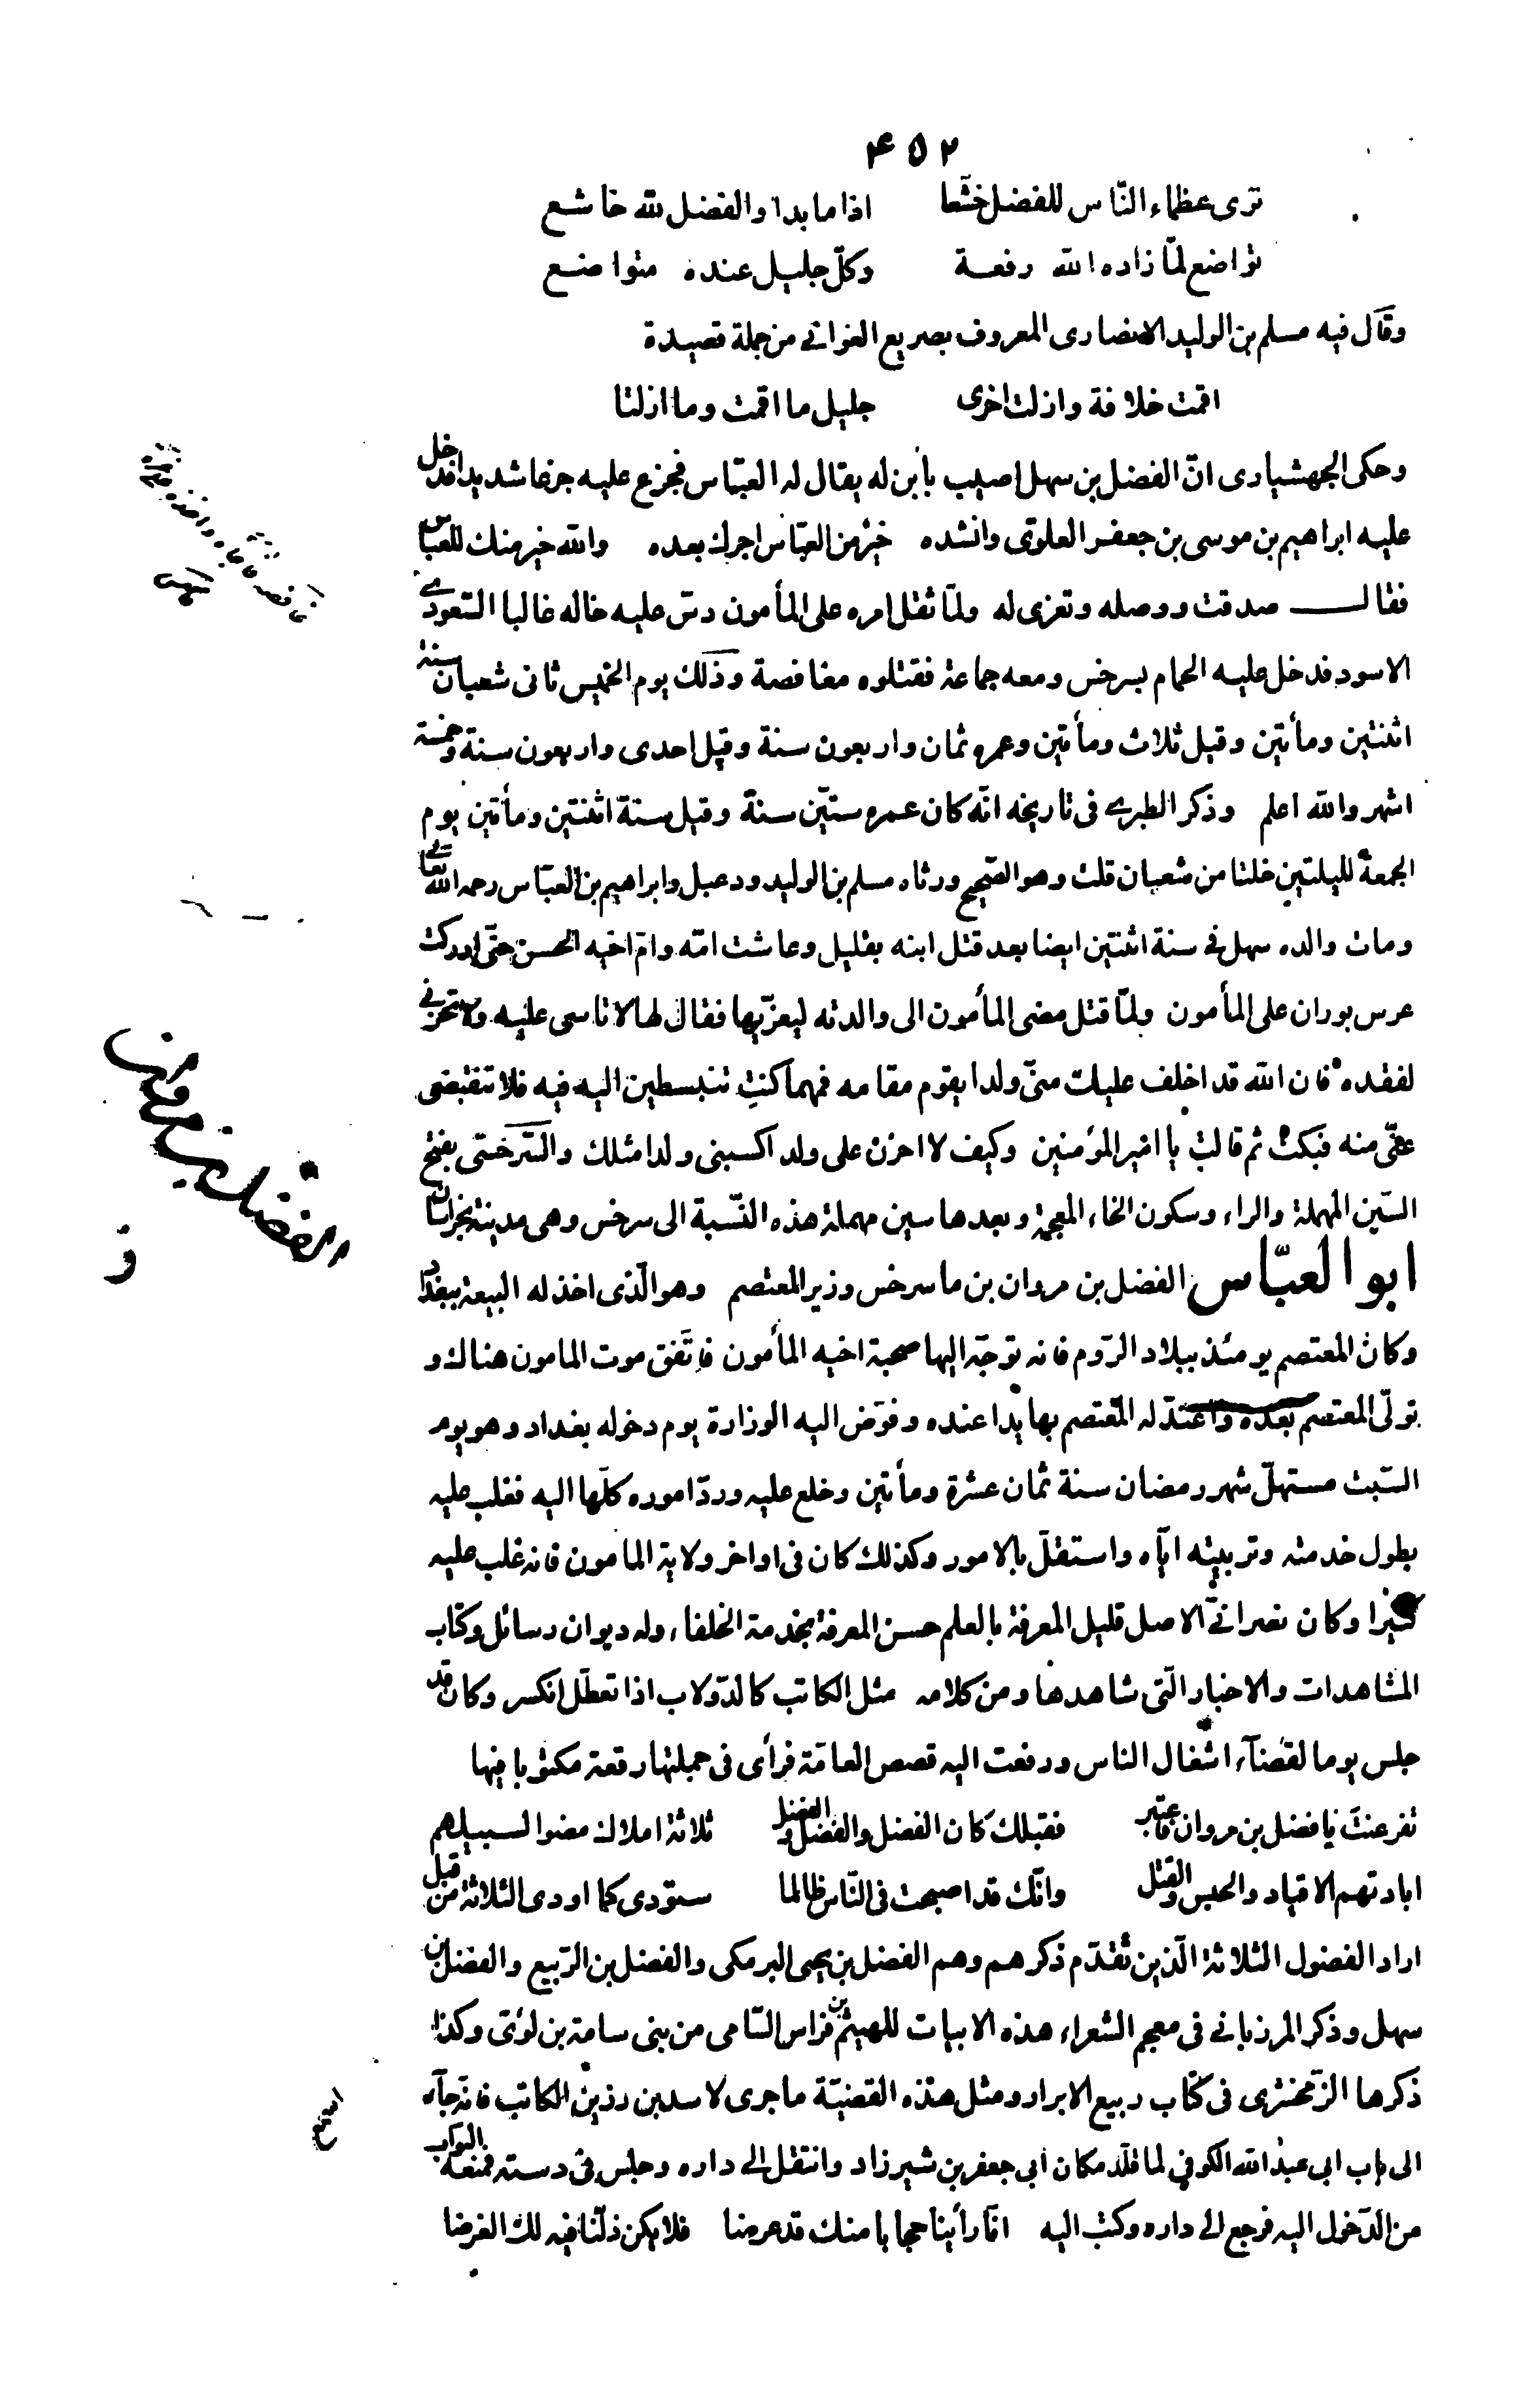 ۴۵۲
ترى عظماء النّاس للفضل خشّعا اذا ما بدا والفضل لله خاشع
تواضع لمّا زاده الله رفعة وكلّ جليل عنده متواضع
وقال فيه مسلم بن الوليد الانصارى المعروف بصريع الغوانى من جملة قصيدة
اقمت خلافة وازلت اخرى جليل ما اقمت وما ازلتا
وحكى الجهشيارى انّ الفضل بن سهل اصيب بابن له يقال له العبّاس فجزع عليه جزعا شديدا فدخل
عليه ابراهيم بن موسى بن جعفر العلوىّ وانشده خير من العبّاس اجرك بعده والله خير منك للعبّاس
فقال صدقت ووصله وتعزى له ولمّا ثقل امره على المأمون دسّ عليه خاله غالبا السّعودى
الاسود فدخل عليه الحمام بسرخس ومعه جماعة فقتلوه مغافصة وذلك يوم الخميس ثانى شعبان سنة
اثنتين ومأتين وقيل ثلاث ومأتين وعمره ثمان واربعون سنة وقيل احدى واربعون سنة وخمسة
اشهر والله اعلم وذكر الطبرى فى تاريخه انّه كان عمره ستّين سنة وقيل سنة اثنتين ومأتين يوم
الجمعة لليلتين خلتا من شعبان قلت وهو الصّحيح ورثاه مسلم بن الوليد ودعبل وابراهيم بن العبّاس رحمه الله تعالى
ومات والده سهل فى سنة اثنتين ايضا بعد قتل ابنه بقليل وعاشت امّه وامّ اخيه الحسن حتّى ادركت
عرس بوران على المأمون ولمّا قتل مضى المأمون الى والدته ليعزّيها فقال لها لا تاسى عليه ولا تحزنى
لفقده فان الله قد اخلف عليك منّى ولدا يقوم مقامه فمهما كنتِ تنبسطين اليه فيه فلا تنقبضى
عنّى منه فبكت ثم قالت يا امير المؤمنين وكيف لا احزن على ولد اكسبنى ولدا مثلك والسّرخسّى بفتح
السّين المهملة والراء وسكون الخاء المعجمة وبعدها سين مهملة هذه النّسبة الى سرخس وهى مدينة بخراسان
ابو العبّاس الفضل بن مروان بن ماسرخس وزير المعتصم وهو الّذى اخذ له البيعة ببغداد
وكان المعتصم يومئذ ببلاد الرّوم فانه توجّه اليها صحبة اخيه المأمون فاتّفق موت المامون هناك و
تولّى المعتصم بعده واعتدّ له المعتصم بها يدا عنده وفوّض اليه الوزارة يوم دخوله بغداد وهو يوم
السّبت مستهلّ شهر رمضان سنة ثمان عشرة ومأتين وخلع عليه وردّ اموره كلّها اليه فغلب عليه
بطول خدمته وتربيته ايّاه واستقلّ بالامور وكذلك كان فى اواخر ولاية المامون فانه غلب عليه
كثيرا وكان نصرانىّ الاصل قليل المعرفة بالعلم حسن المعرفة بخدمة الخلفاء وله ديوان رسائل وكتاب
المشاهدات والاخبار الّتى شاهدها ومن كلامه مثل الكاتب كالدّولاب اذا تعطّل انكسر وكان قد
جلس يوما لقضآء اشغال الناس ورفعت اليه قصص العامّة فرأى فى جملتها رقعة مكتوبا فيها
تفرعنتَ يا فضل بن مروان فاعتبر فقبلك كان الفضل والفضل والفضل ثلاثة املاك مضوا لسبيلهم
ابادتهم الاقياد والحبس والقتل وانّك قد اصبحت فى النّاس ظالما ستودى كما اودى الثلاثة من قبل
اراد الفضول الثلاثة الّذين تقدّم ذكرهم وهم الفضل بن يحيى البرمكى والفضل بن الرّبيع والفضل بن
سهل وذكر المرزبانى فى معجم الشعراء هذه الابيات للهيثم بن فراس السّامى من بنى سامة بن لوىّ وكذا
ذكرها الزّمخشرى فى كتاب ربيع الابرار ومثل هذه القضيّة ما جرى لاسد بن رزين الكاتب فانه جآء
الى باب ابى عبد الله الكوفى لما قلّد مكان ابى جعفر بن شيرزاد وانتقل الى داره وجلس فى دسته فمنعه البوّاب
من الدّخول اليه فرجع الى داره وكتب اليه انّا رأينا حجابا منك قد عرضا فلا يكن ذلّنا فيه لك الغرضا
الفضل بن مروان